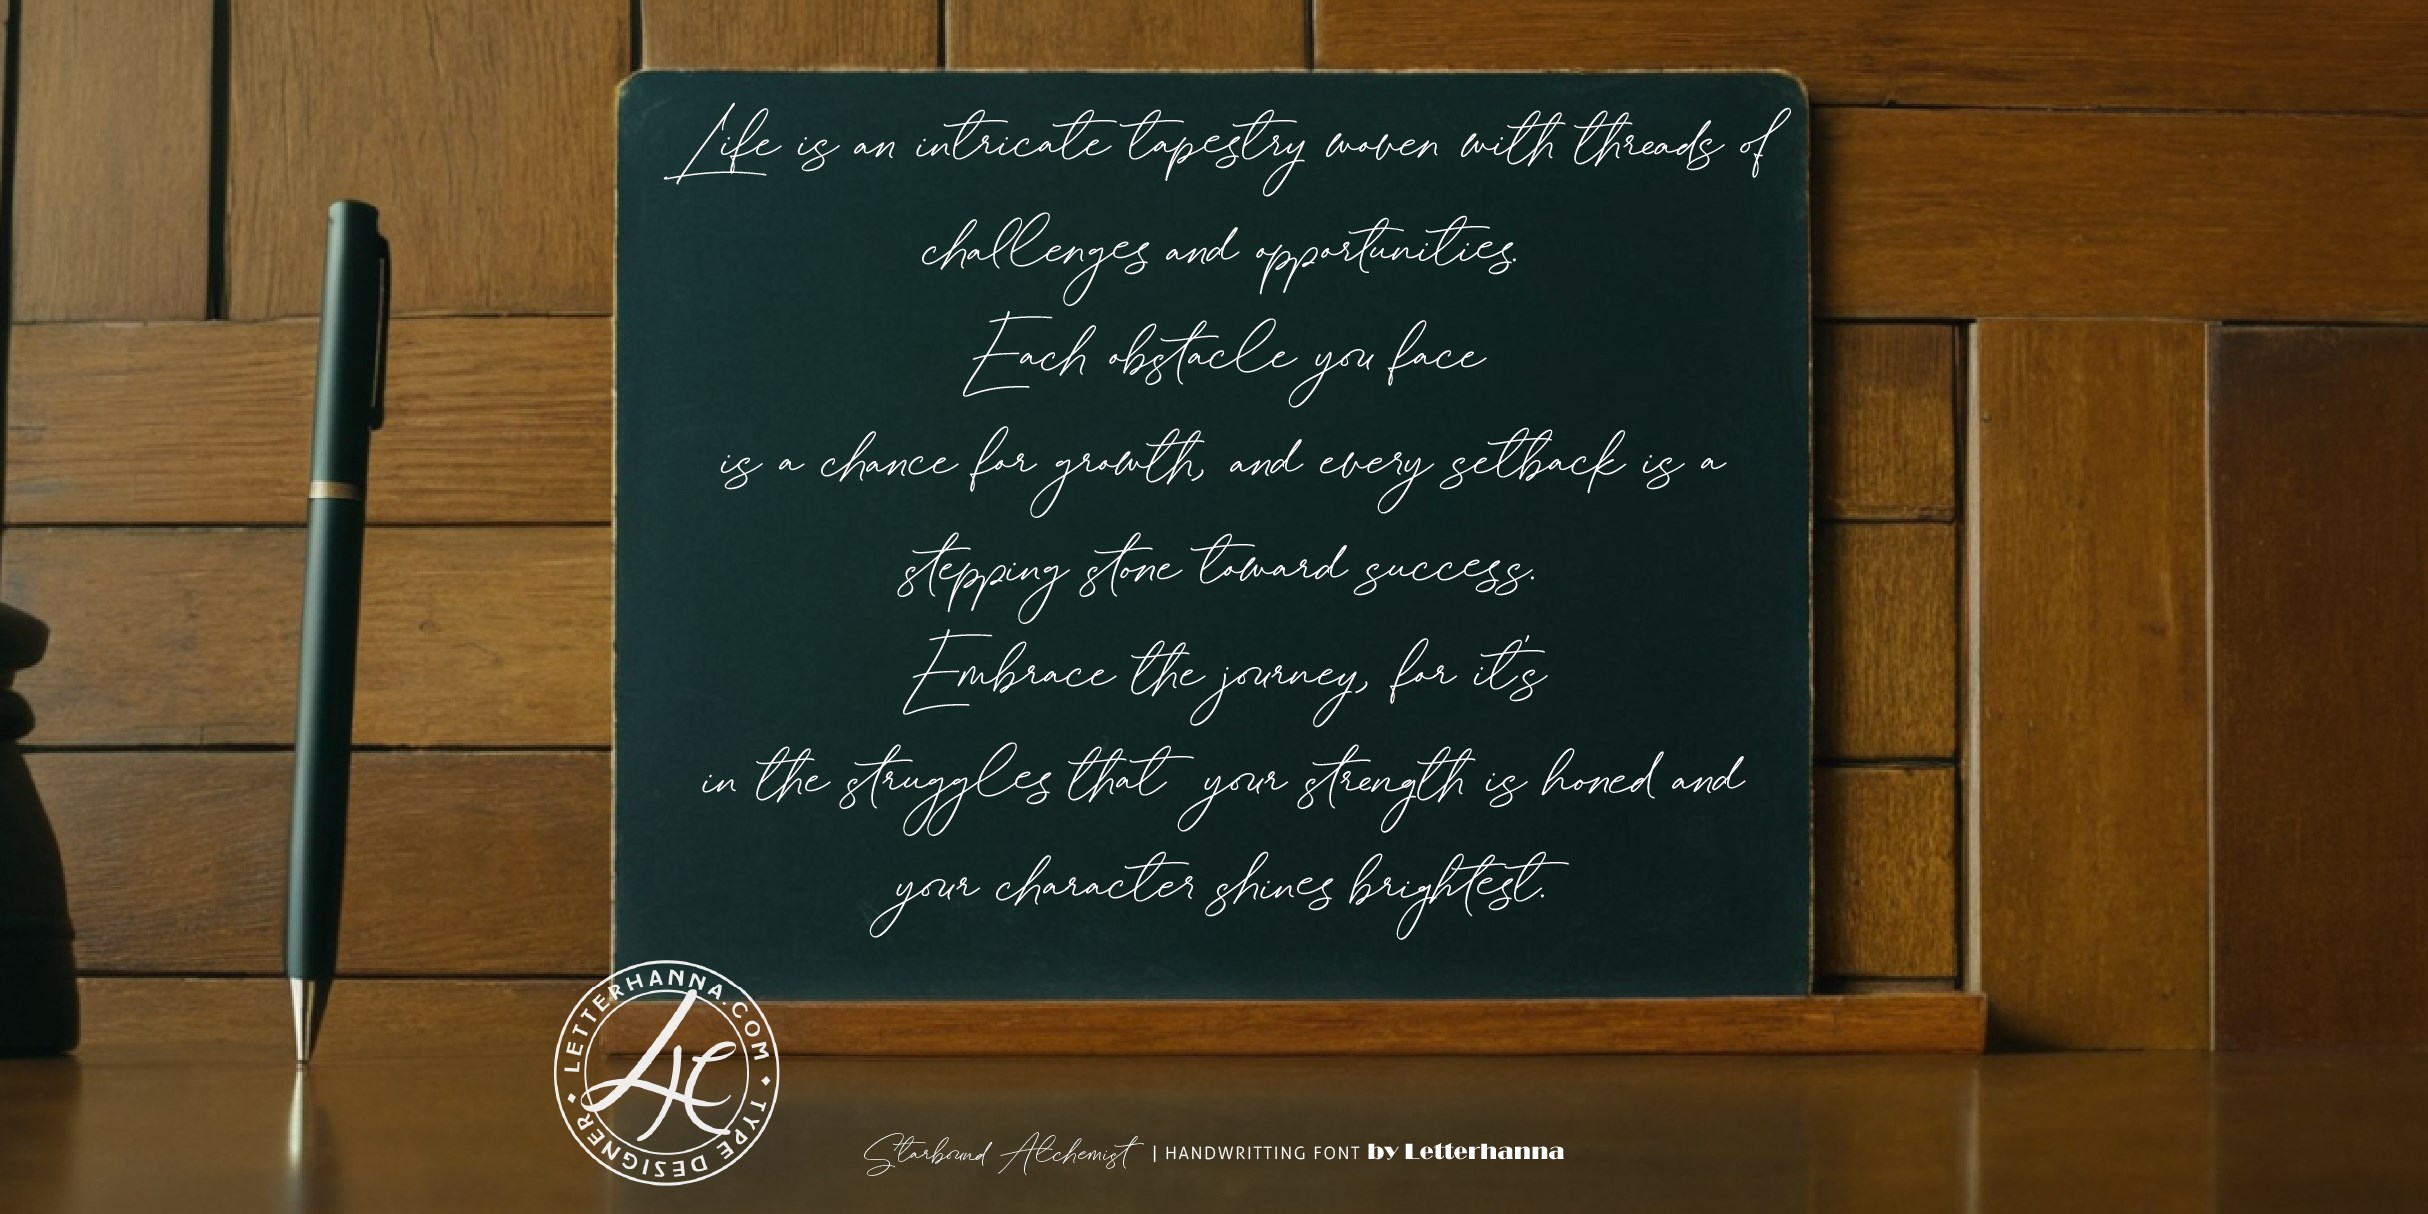 Life is an intricate tapestry woven with threads of
challenges and opportunities.
Each obstacle you face
is a chance for growth, and every setback is a
stepping stone toward success.
Embrace the journey, for it's
in the struggles that your strength is honed and
your character shines brightest.
LETTERHANNA.COM • TYPE DESIGNER •
LH
Starbound Alchemist | HANDWRITTING FONT by Letterhanna